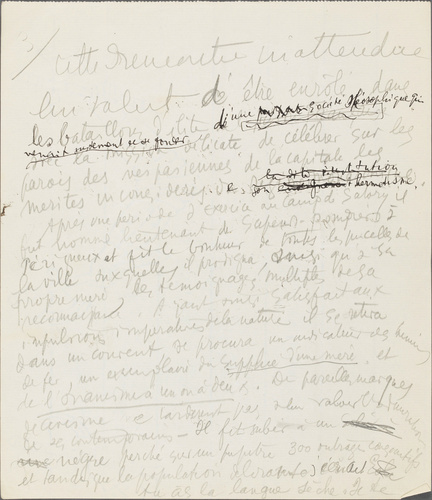 3/
Cette rencontre inattendue
lui valut d'être enrôlé dans
les bataillons d'élite d'une société théosophique qui
venait justement de se fonder
avec la mission délicate de célébrer sur les
parois des vespasiennes de la capitale les
mérites inconsidérés de la dite institution
et son hermétisme.
Après une période d'exercice au camp de Satory il
fut nommé lieutenant de sapeurs-pompiers à
Périgueux et fit le bonheur de toutes les pucelles de
la ville auxquelles il prodigua ainsi qu'à sa
propre mère les témoignages multiples de sa
reconnaissance. Ayant ainsi satisfait aux
impulsions impératives de la nature il se retira
dans un couvent se procura un indicateur des chemins
de fer, un exemplaire du Supplice d'une mère et
de l'Onanisme à un ou à deux. De pareilles marques
de civisme ne tardèrent pas à lui valoir l'admiration
de ses contemporains – Il fit subir à un
nègre perché sur un pupitre 300 outrages consécutifs
et tandis que la population
la langue sèche